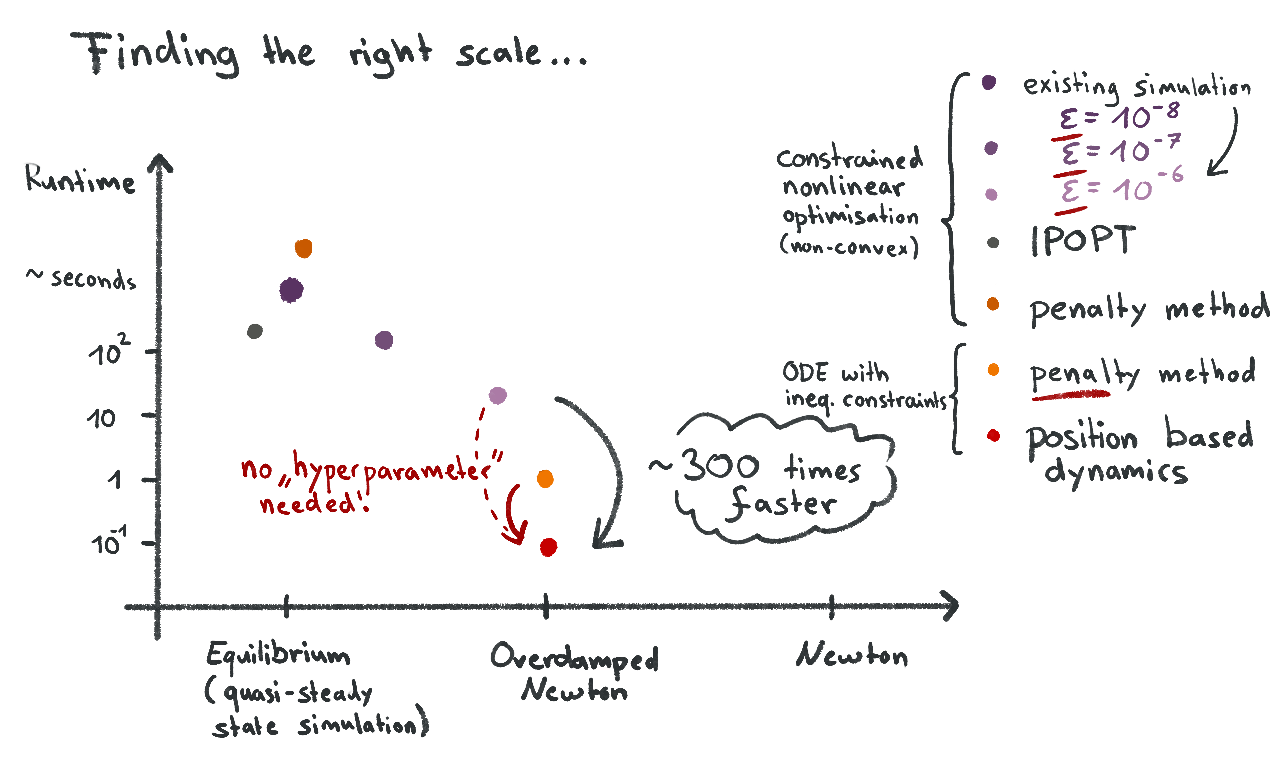 Finding the right scale...
Runtime
~ seconds
10²
10
1
10⁻¹
no „hyperparameter"
needed!
~300 times
faster
Equilibrium
(quasi-steady
state simulation)
Overdamped
Newton
Newton
constrained
nonlinear
optimisation
(non-convex)
existing simulation
ε = 10⁻⁸
ε = 10⁻⁷
ε = 10⁻⁶
IPOPT
penalty method
ODE with
ineq. constraints
penalty method
position based
dynamics